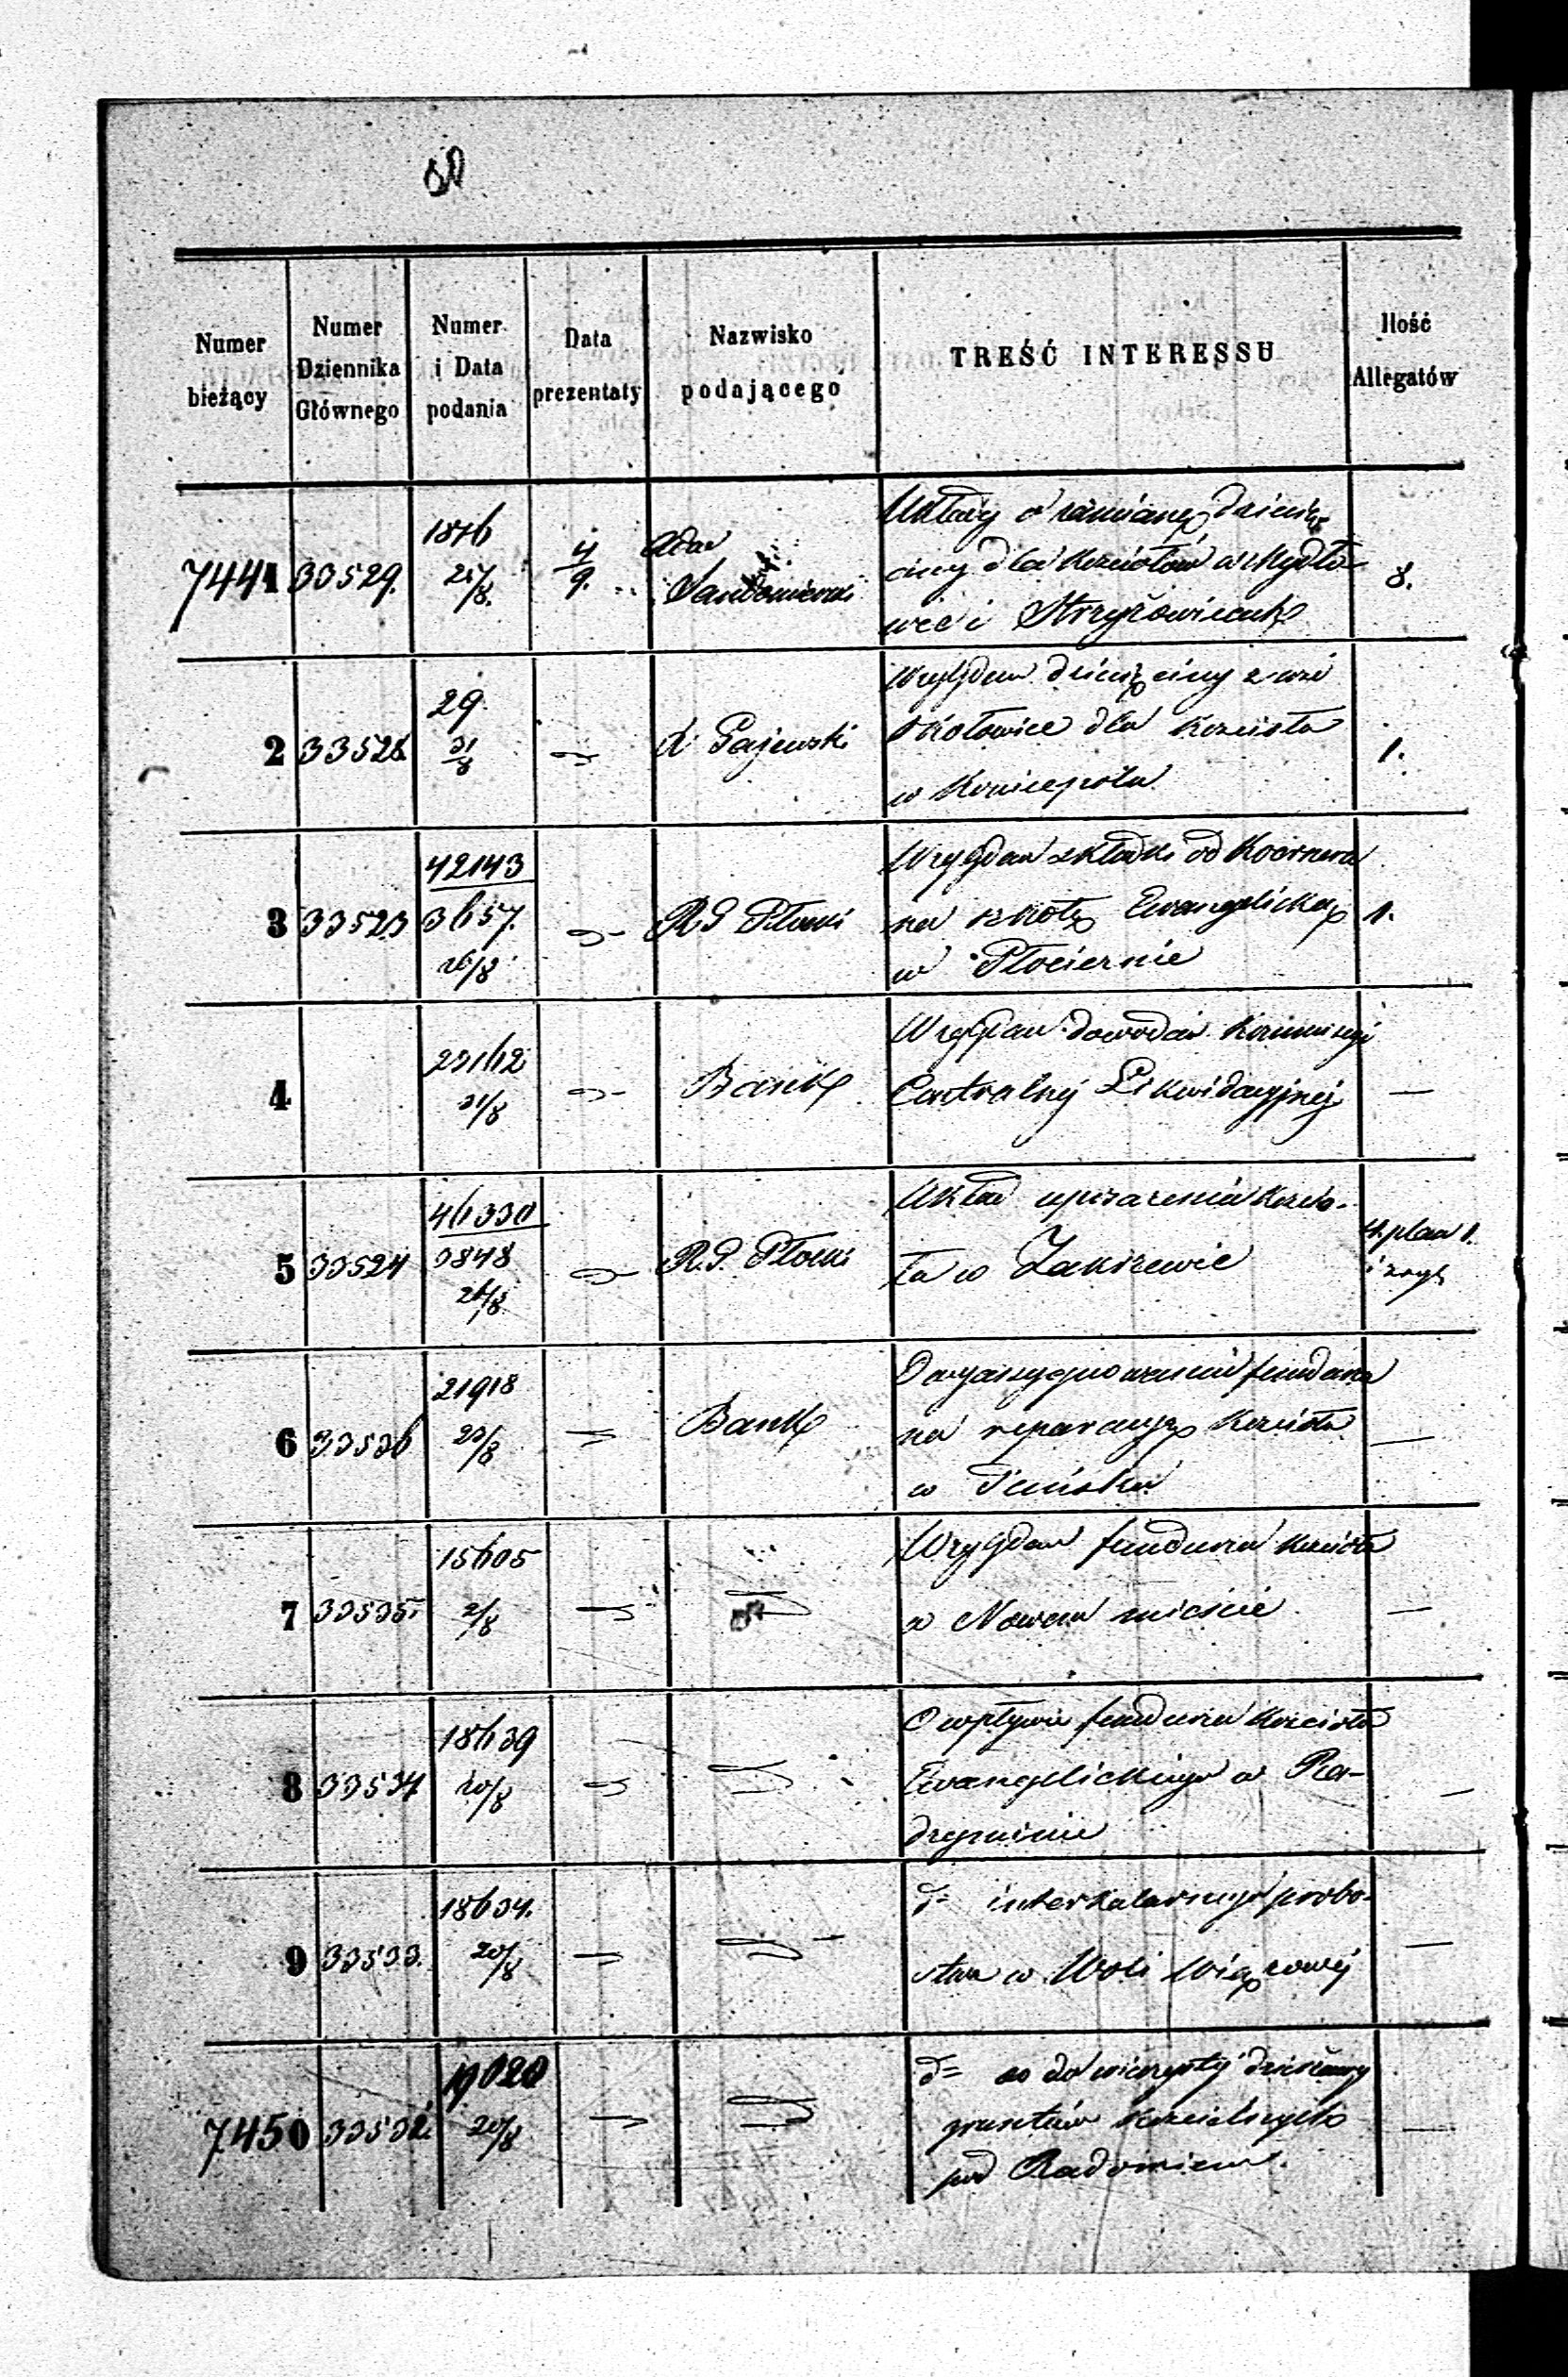 Numer bieżący
Numer Dziennika Głównego
Numer i Data podania
Data prezentaty
Nazwisko podającego
TREŚĆ INTERESSU
Ilość Allegatów
7441 33529. 1846 25/8. 4/9. Adm Sandomierski
Układy o zamianę dziesię-
ciny dla Kościołów w Mydło-
wce i Strzyżowicach
8.
2 33528 29. 31/8 Gajewski
Względem dziesięciny z wsi
dla Kościoła
w Koniecpolu
1.
3 33523 42143 3657. 26/8 R G Płocki
Względem składki od
na szkołę Ewangelicką
w Płociernie
1.
4 31/8 Bank
Względem dowodów Kommisyi
Centralnej Likwidacyjnej
—
5 33524 46330 3848 26/8 R. G. Płocki
Układ uposażenia Kościo-
ła w Zakrzewie
4. plan 1.
6 33536 21918 Bank
O wyassygnowaniu funduszu
na reparacyę Kościoła
w Pińsku
—
7 33535. 15605 2/8
Względem funduszu Kościoła
w Nowem mieście
—
8 33534 18639 20/8
O wpływie funduszu Kościoła
Ewangelickiego w Ra-
dzyminie
—
9 33533. 18634. 20/8
d= interkalarnego probo-
stwa w Woli Wiązowej
—
7450 33532. 19020 20/8
d= co do wieczystej dzierżawy
gruntów Kościelnych
pod Radomiem.
—